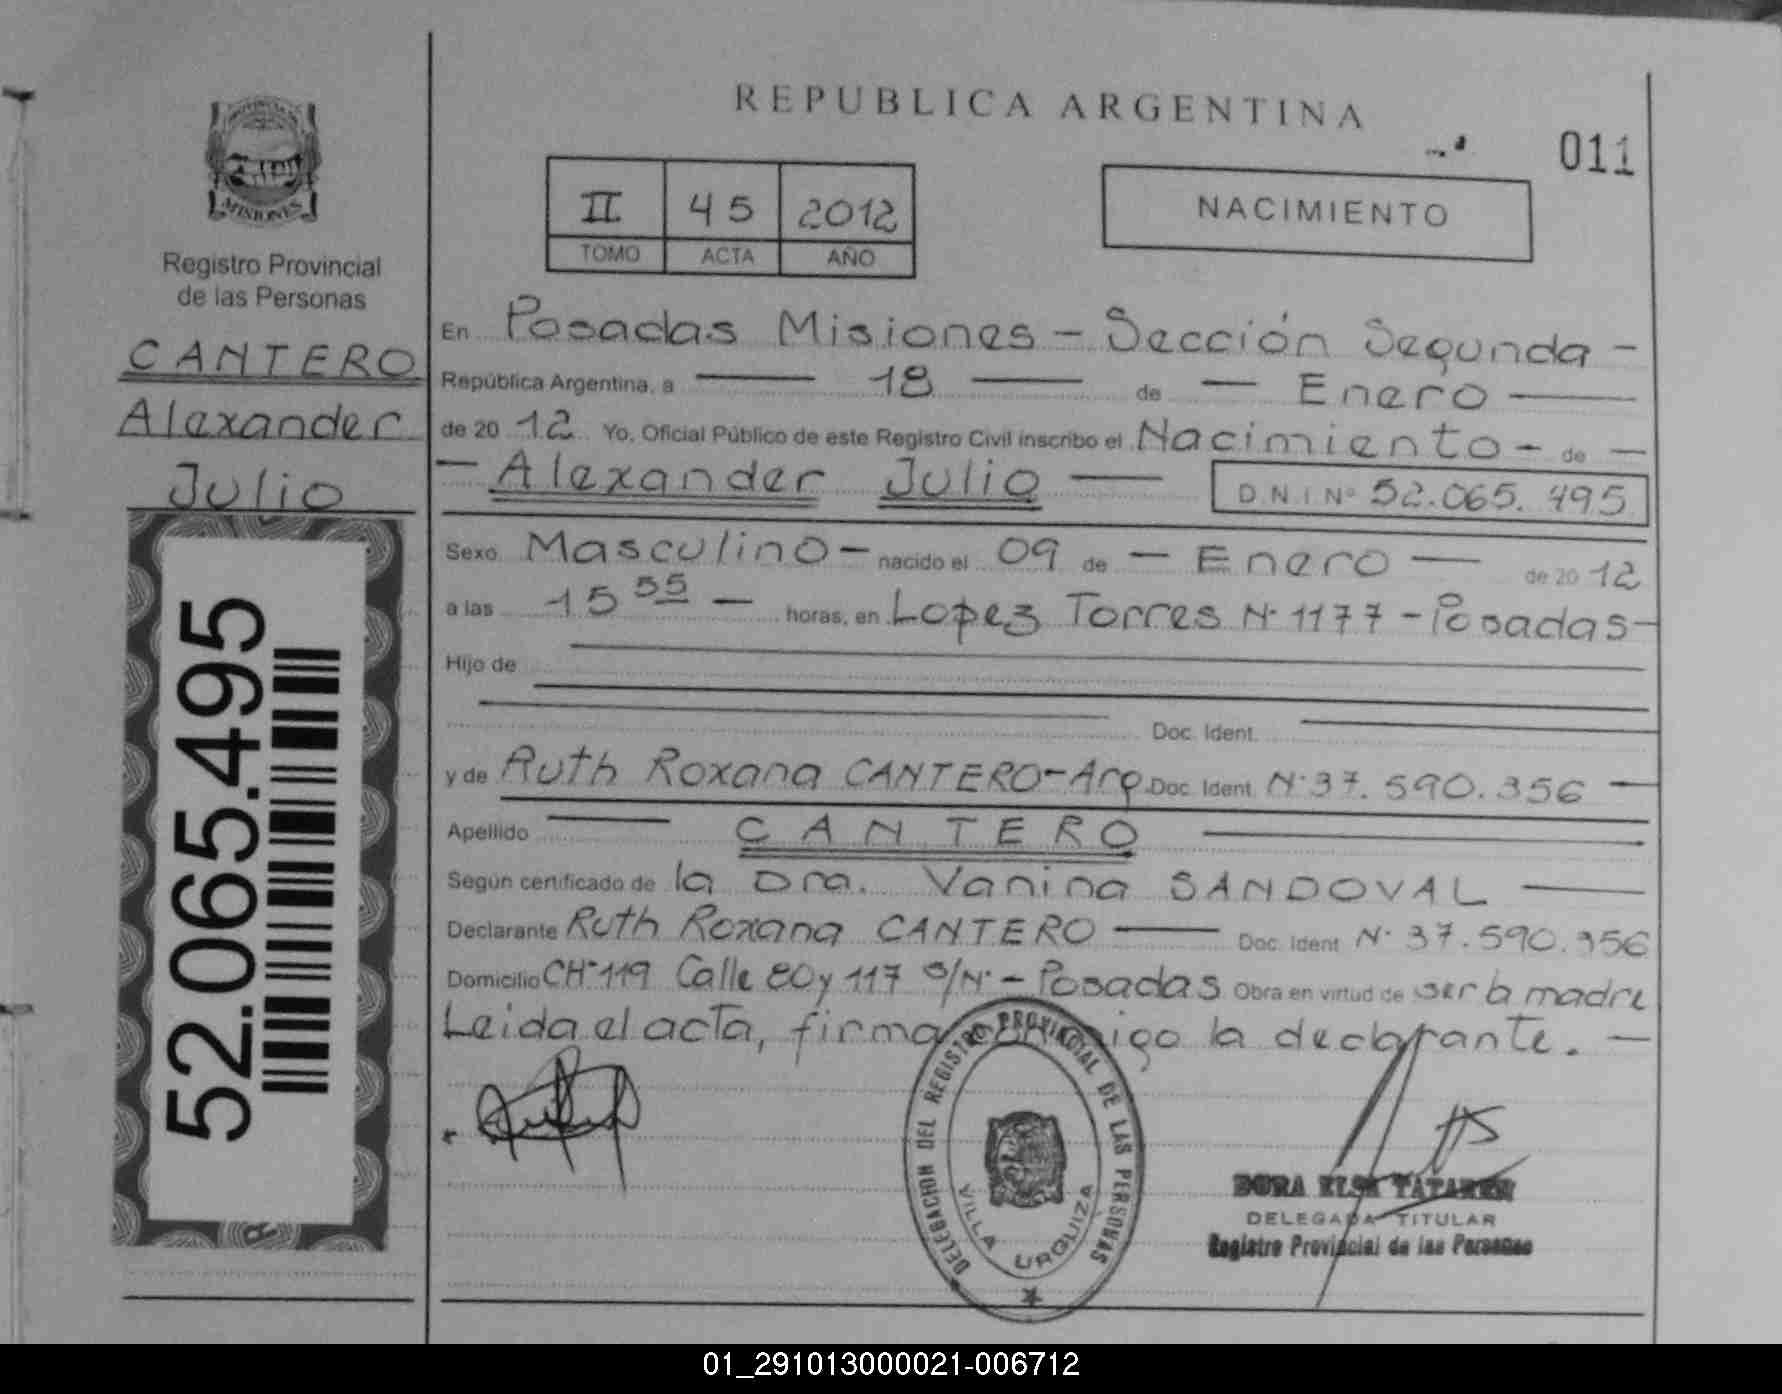 REPUBLICA ARGENTINA
011
II 45 2012
TOMO ACTA AÑO
NACIMIENTO
MISIONES
Registro Provincial
de las Personas
CANTERO
Alexander
Julio
52.065.495
En Posadas Misiones - Sección Segunda -
República Argentina, a 18 de Enero
de 20 12 Yo, Oficial Público de este Registro Civil inscribo el Nacimiento - de -
Alexander Julio D.N.I Nº 52.065.495
Sexo Masculino - nacido el 09 de - Enero - de 20 12
a las 15 55 - horas, en Lopez Torres Nº 1177 - Posadas -
Hijo de
Doc. Ident.
y de Ruth Roxana CANTERO - Arg. Doc. Ident. Nº 37.590.356 -
Apellido CANTERO
Según certificado de la Dra. Vanina SANDOVAL
Declarante Ruth Roxana CANTERO Doc. Ident Nº 37.590.356
Domicilio CHº 119 Calle 80 y 117 S/Nº - Posadas Obra en virtud de ser la madre
Leida el acta, firma conmigo la declarante. -
DELEGACION DEL REGISTRO PROVINCIAL DE LAS PERSONAS
VILLA URQUIZA
DORA ELSA
DELEGADA TITULAR
Registro Provincial de las Personas
01_291013000021-006712